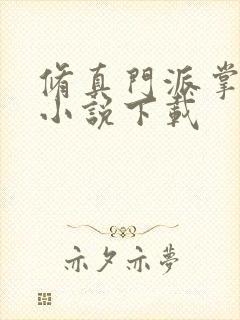 脩真門派掌
小說下載
亦夕亦夢